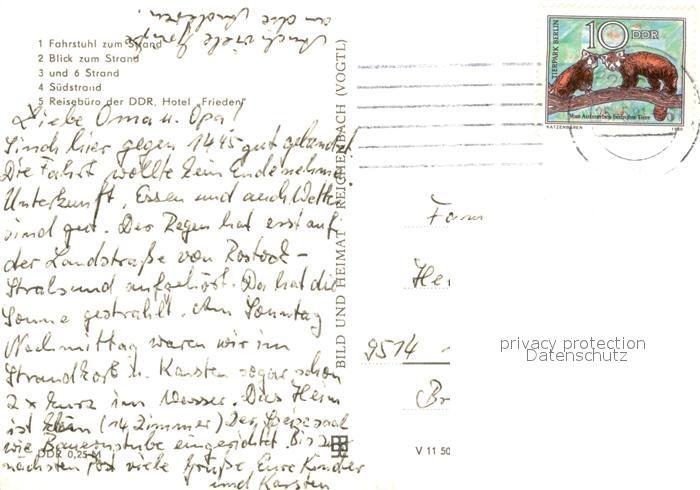 Auch viele Grüße
an die Anderen.
1 Fahrstuhl zum Strand
2 Blick zum Strand
3 und 6 Strand
4 Südstrand
5 Reisebüro der DDR, Hotel „Frieden"
Liebe Oma u. Opa!
Sind hier gegen 1445 gut gelandet.
Die Fahrt wollte kein Ende nehmen.
Unterkunft, Essen und auch Wetter
sind gut. Der Regen hat erst auf
der Landstraße von Rostock-
Stralsund aufgehört. Da hat die
Sonne gestrahlt. Am Sonntag
Nachmittag waren wir im
Strandkorb u. Karsten sogar schon
2x kurz im Wasser. Das Heim
ist klein (14 Zimmer) Der Speisesaal
wie Bauernstube eingerichtet. Bis zur
nächsten Post viele Grüße Eure Kinder
und Karsten
DDR 0,25 M
BILD UND HEIMAT REICHENBACH (VOGTL)
V 11 50
TIERPARK BERLIN
10 DDR
Vom Aussterben bedrohte Tiere
KATZENBÄREN
Fam
He
9514
Br
privacy protection
Datenschutz